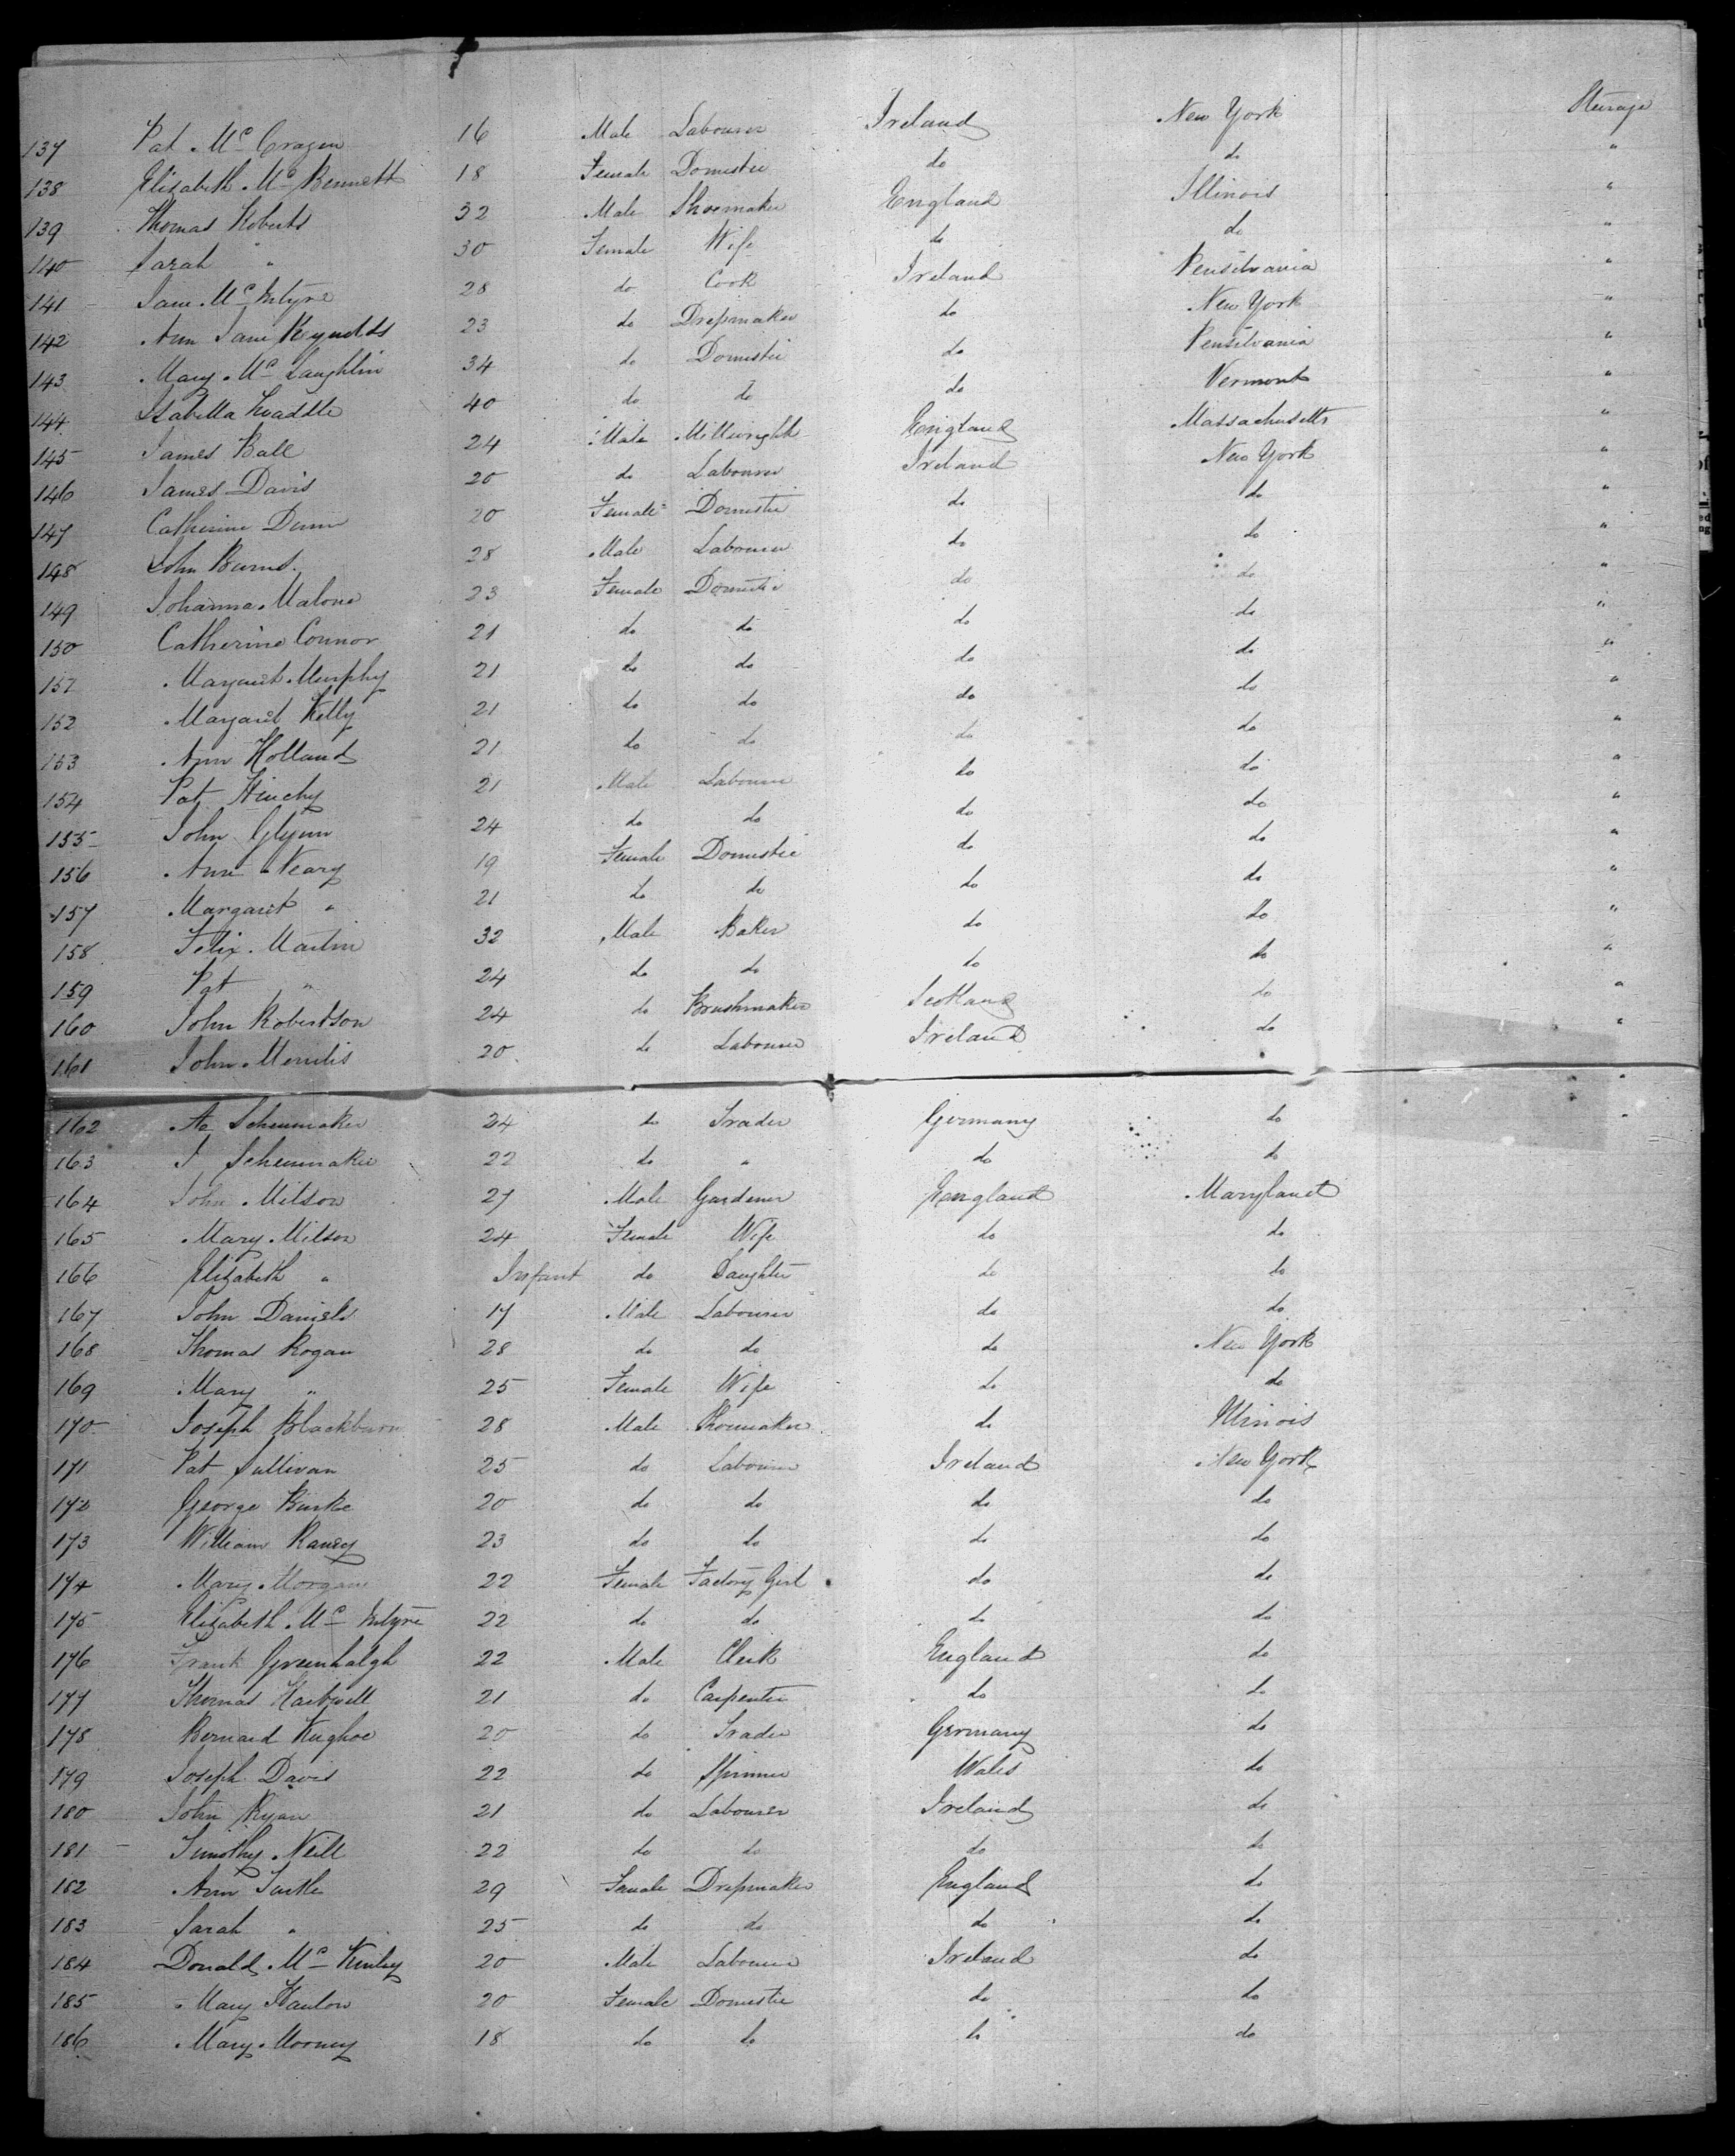 137 Pat McCragen 16 Male Labourer Ireland New York Steerage
138 Elizabeth McBennett 18 Female Domestic do do "
139 Thomas Roberts 32 Male Shoemaker England Illinois "
140 Sarah " 30 Female Wife do do "
141 Jane McIntyre 28 do Cook Ireland Pensilvania "
142 Ann Jane Reynolds 23 do Dressmaker do New York "
143 Mary McLaughlin 34 do Domestic do Pensilvania "
144 Isabella 40 do do do Vermont "
145 James Ball 24 Male Millwright England Massachusetts "
146 James Davis 20 do Labourer Ireland New York "
147 Catherine Dunn 20 Female Domestic do do "
148 John Burns. 28 Male Labourer do do "
149 Johanna Malone 23 Female Domestic do do "
150 Catherine Connor 21 do do do do "
151 Margaret Murphy 21 do do do do "
152 Margaret Kelly 21 do do do do "
153 Ann Holland 21 do do do do "
154 Pat Hinchy 21 Male Labourer do do "
155 John Glynn 24 do do do do "
156 Ann Neary 19 Female Domestic do do "
157 Margaret " 21 do do do do "
158 Felix Martin 32 Male Baker do do "
159 Pat " 24 do do do do "
160 John Robertson 24 do Brushmaker Scotland do "
161 John 20 do Labourer Ireland do "
162 Schenmaker 24 do Trader Germany do "
163 J Schenmaker 22 do " do do
164 John Milson 27 Male Gardener England Maryland
165 Mary Milson 24 Female Wife do do
166 Elizabeth " Infant do Daughter do do
167 John Daniels 17 Male Labourer do do
168 Thomas Rogan 28 do do do New York
169 Mary " 25 Female Wife do do
170 Joseph Blackburn 28 Male Shoemaker do Illinois
171 Pat Sullivan 25 do Labourer Ireland New York
172 George Burke 20 do do do do
173 William Raney 23 do do do do
174 Mary Morgan 22 Female Factory Girl do do
175 Elizabeth McIntyre 22 do do do do
176 Frank Greenhalgh 22 Male Clerk England do
177 Thomas Hartwell 21 do Carpenter do do
178 Bernard 20 do Trader Germany do
179 Joseph Davis 22 do Spinner Wales do
180 John Ryan 21 do Labourer Ireland do
181 Timothy Neill 22 do do do do
182 Ann 29 Female Dressmaker England do
183 Sarah " 25 do do do do
184 Donald McKinley 20 Male Labourer Ireland do
185 Mary Hanlon 20 Female Domestic do do
186 Mary Mooney 18 do do do do